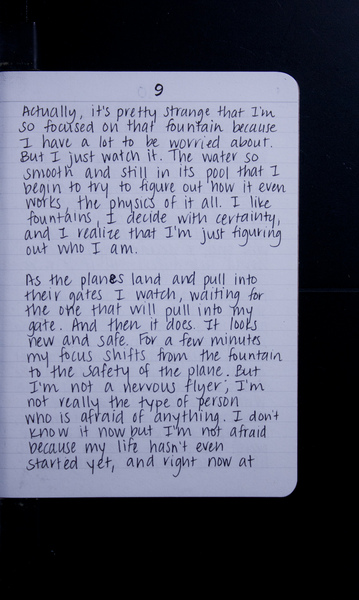 9
Actually, it's pretty strange that I'm
so focused on that fountain because
I have a lot to be worried about.
But I just watch it. The water so
smooth and still in its pool that I
begin to try to figure out how it even
works, the physics of it all. I like
fountains, I decide with certainty,
and I realize that I'm just figuring
out who I am.
As the planes land and pull into
their gates I watch, waiting for
the one that will pull into my
gate. And then it does. It looks
new and safe. For a few minutes
my focus shifts from the fountain
to the safety of the plane. But
I'm not a nervous flyer; I'm
not really the type of person
who is afraid of anything. I don't
know it now but I'm not afraid
because my life hasn't even
started yet, and right now at